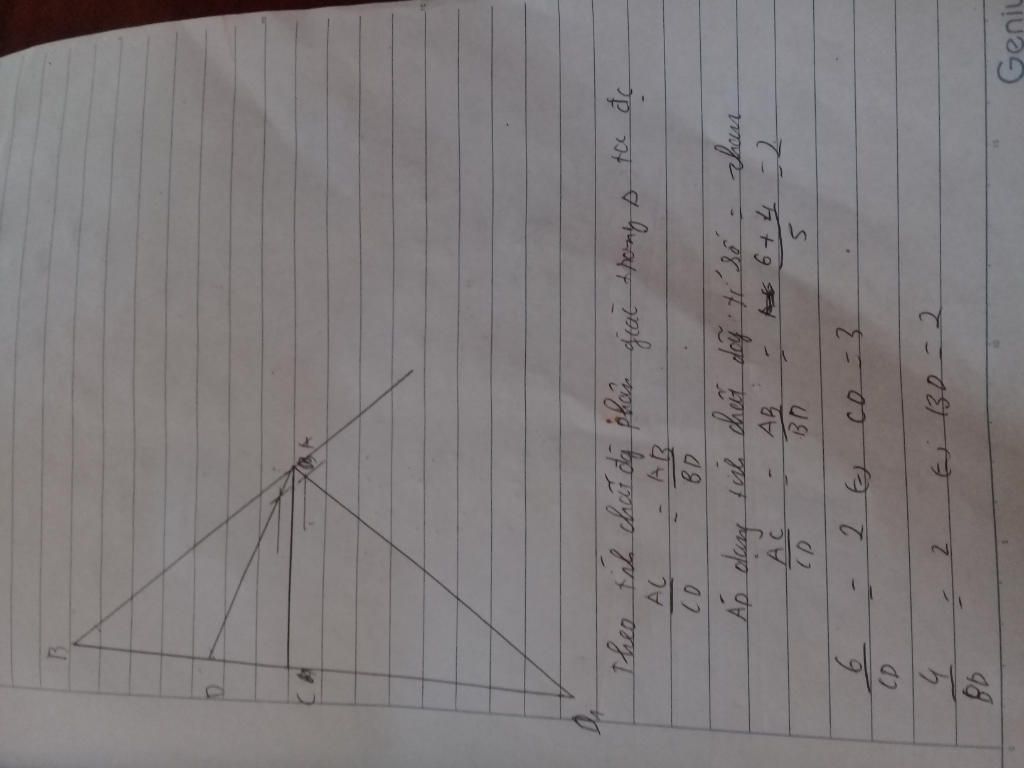 B
D
C
A
D1
Theo tính chất đg phân giác trong Δ ta đc
AC/CD = AB/BD
Áp dụng tính chất dãy tỉ số = nhau
AC/CD = AB/BD = (6+4)/5 = 2
6/CD = 2 (=) CD = 3
4/BD = 2 (=) BD = 2
Geniu